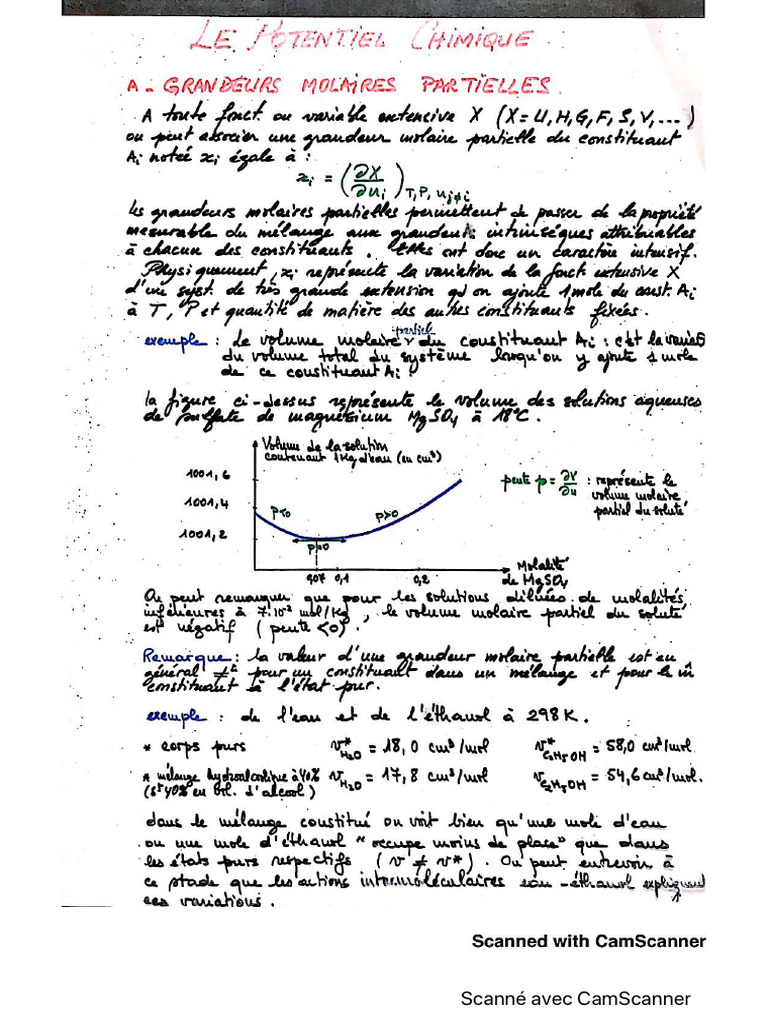 LE POTENTIEL CHIMIQUE
A - GRANDEURS MOLAIRES PARTIELLES.
A toute fonct. ou variable extensive X (X = U, H, G, F, S, V, ...)
on peut associer une grandeur molaire partielle du constituant
Ai notée xi égale à :
xi = (∂X/∂ni) T, P, nj≠i
Les grandeurs molaires partielles permettent de passer de la propriété
mesurable du mélange aux grandeurs intrinsèques attribuables
à chacun des constituants. Elles ont donc un caractère intensif.
Physiquement, xi représente la variation de la fonct extensive X
d'une syst. de très grande extension qd on ajoute 1 mole du const. Ai
à T, P et quantité de matière des autres constituants fixées.
exemple : Le volume molaire partiel du constituant Ai : c'est la variat
du volume total du système lorsqu'on y ajoute 1 mole
de ce constituant Ai
la figure ci-dessus représente le volume des solutions aqueuses
de sulfate de magnésium MgSO4 à 18°C.
Volume de la solution
contenant 1Kg d'eau (en cm³)
1001,6
1001,4
1001,2
p<0
p>0
p=0
0,07 0,1 0,2
Molalité
de MgSO4
pente p = ∂V/∂n : représente le
volume molaire
partiel du soluté
On peut remarquer que pour les solutions diluées de molalités
inférieures à 7.10⁻² mol/Kg, le volume molaire partiel du soluté
est négatif (pente <0).
Remarque : la valeur d'une grandeur molaire partielle est en
général ≠te pour un constituant dans un mélange et pour le m̂
constituant à l'état pur.
exemple : de l'eau et de l'éthanol à 298K.
* corps purs v*H2O = 18,0 cm³/mol v*C2H5OH = 58,0 cm³/mol.
* mélange hydroalcoolique à 40% vH2O = 17,8 cm³/mol vC2H5OH = 54,6 cm³/mol.
(sᵗ 40% en vol. d'alcool)
dans le mélange constitué on voit bien qu'une mole d'eau
ou une mole d'éthanol "occupe moins de place" que dans
les états purs respectifs (v ≠ v*). On peut entrevoir à
ce stade que les actions intermoléculaires eau-éthanol expliquent
ces variations.
Scanned with CamScanner
Scanné avec CamScanner